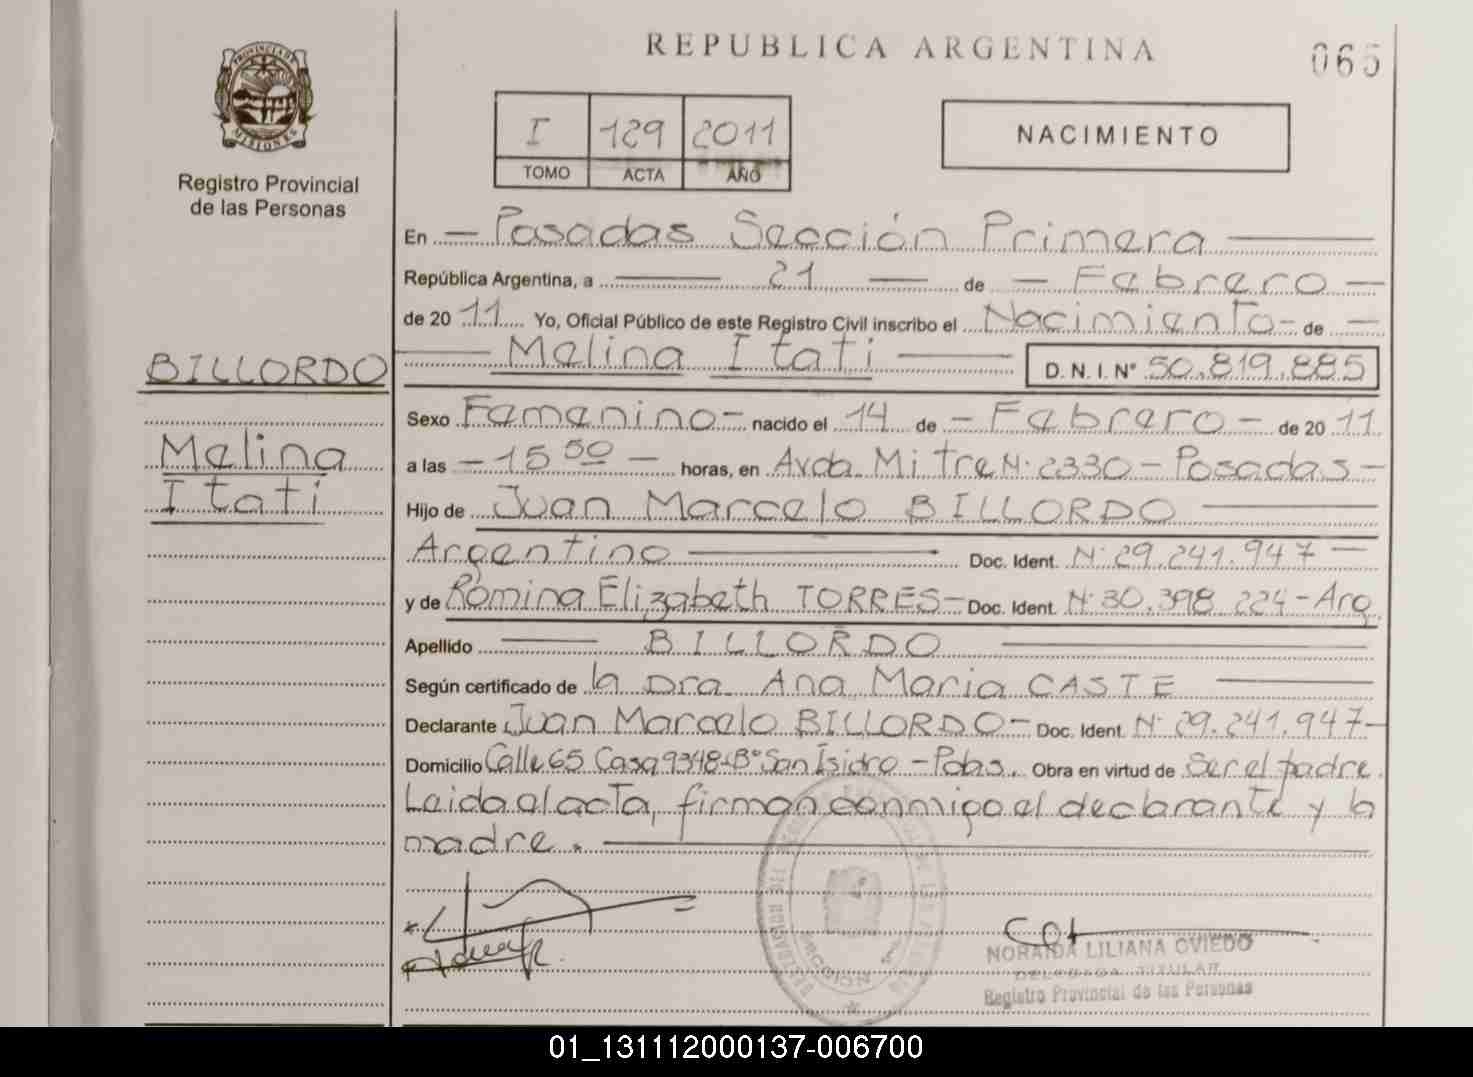 REPUBLICA ARGENTINA
065
PROVINCIA DE
MISIONES
Registro Provincial
de las Personas
I 129 2011
TOMO ACTA AÑO
NACIMIENTO
En — Posadas Sección Primera —
República Argentina, a — 21 — de — Febrero —
de 2011 Yo, Oficial Público de este Registro Civil inscribo el Nacimiento- de —
— Melina Itatí — D. N. I. N° 50.819.885
BILLORDO
Melina
Itatí
Sexo Femenino- nacido el 14 de - Febrero - de 2011
a las - 15 50 - horas, en Avda. Mitre N° 2330 - Posadas -
Hijo de Juan Marcelo BILLORDO —
Argentino — Doc. Ident. N° 29.241.947 —
y de Romina Elizabeth TORRES- Doc. Ident. N° 30.398.224 - Arg.
Apellido — BILLORDO —
Según certificado de la Dra. Ana María CASTE —
Declarante Juan Marcelo BILLORDO - Doc. Ident. N° 29.241.947-
Domicilio Calle 65 Casa 9348-B° San Isidro - Pdas. Obra en virtud de Ser el padre.
Leida el acta, firman conmigo el declarante y la
madre. —
NORAIDA LILIANA OVIEDO
DELEGADA TITULAR
Registro Provincial de las Personas
01_131112000137-006700